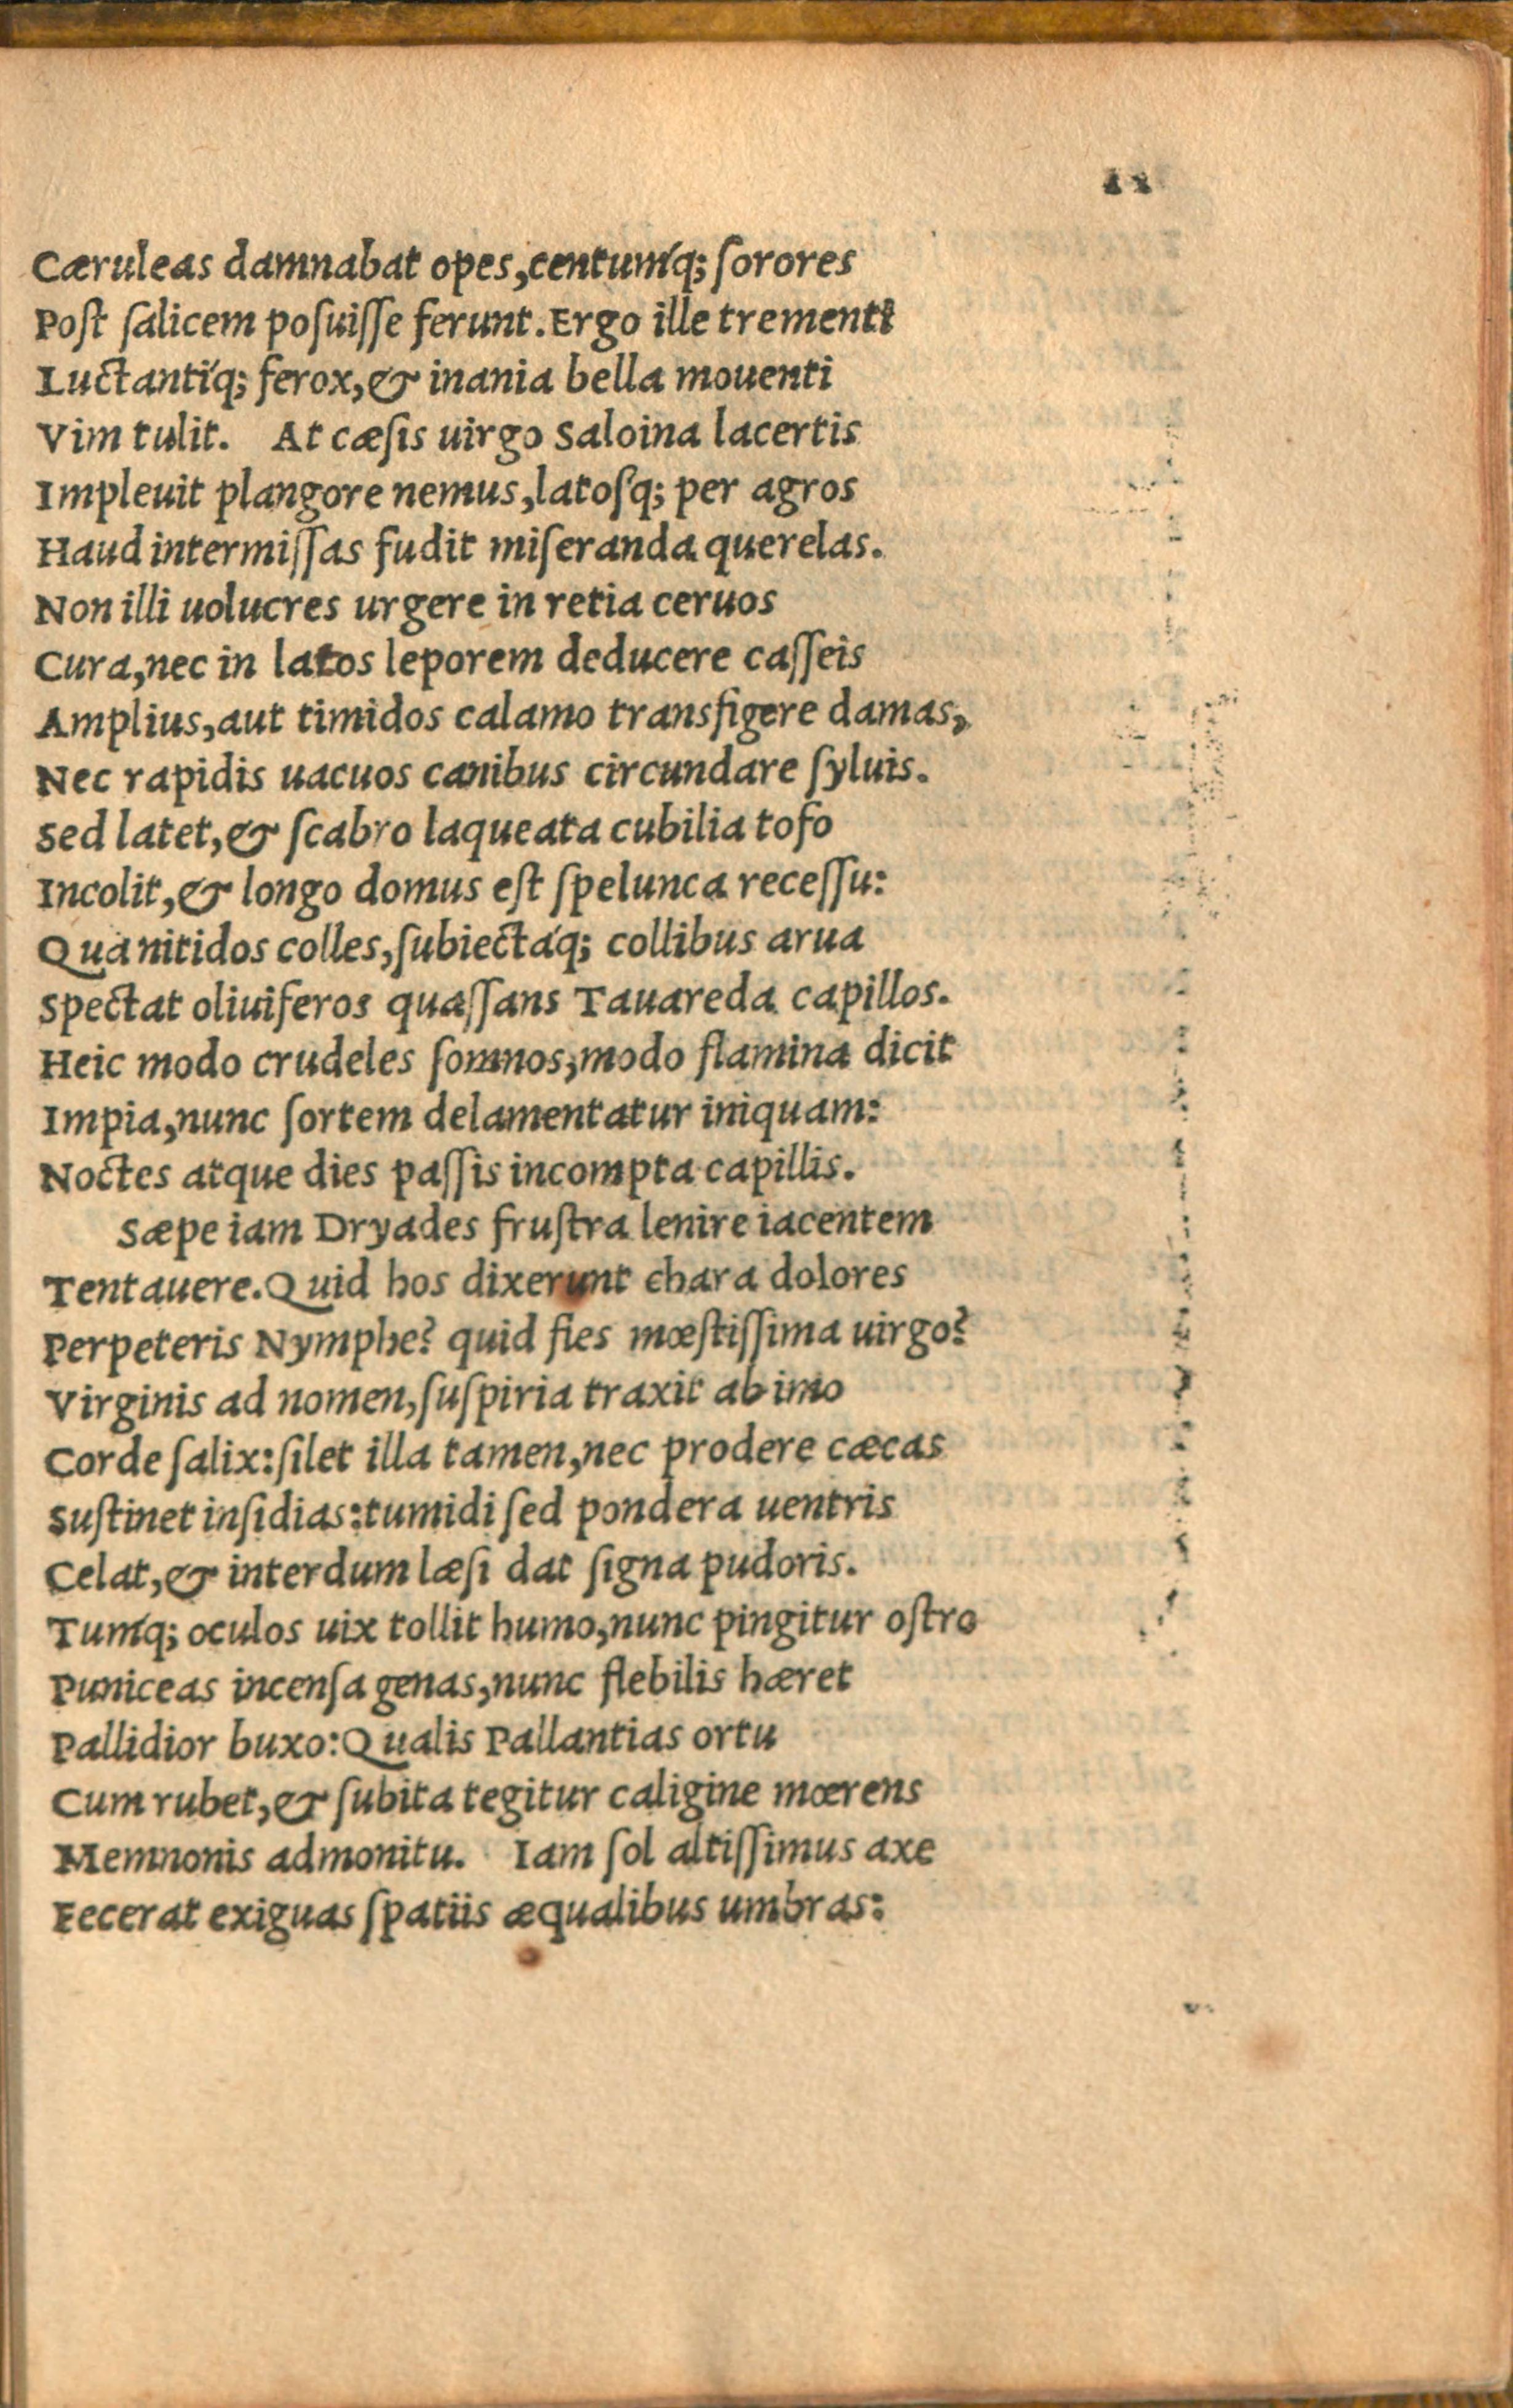 Cæruleas damnabat opes,centumq́; ſorores
Poſt ſalicem poſuiſſe ferunt.Ergo ille trementi
Luctantiq́; ferox,& inania bella mouenti
Vim tulit. At cæſis uirgo Saloina lacertis
Impleuit plangore nemus,latoſq; per agros
Haud intermiſſas fudit miſeranda querelas.
Non illi uolucres urgere in retia ceruos
Cura,nec in latos leporem deducere caſſeis
Amplius,aut timidos calamo transfigere damas,
Nec rapidis uacuos canibus circundare ſyluis.
Sed latet,& ſcabro laqueata cubilia tofo
Incolit,& longo domus eſt ſpelunca receſſu:
Qua nitidos colles,ſubiectaq́; collibus arua
Spectat oliuiferos quaſſans Tauareda capillos.
Heic modo crudeles ſomnos,modo flamina dicit
Impia,nunc ſortem delamentatur iniquam:
Noctes atque dies paſſis incompta capillis.
Sæpe iam Dryades fruſtra lenire iacentem
Tentauere.Quid hos dixerunt chara dolores
Perpeteris Nymphe? quid fles mœſtiſſima uirgo?
Virginis ad nomen,ſuſpiria traxit ab imo
Corde ſalix:ſilet illa tamen,nec prodere cæcas
Suſtinet inſidias:tumidi ſed pondera uentris
Celat,& interdum læſi dat ſigna pudoris.
Tumq́; oculos uix tollit humo,nunc pingitur oſtro
Puniceas incenſa genas,nunc flebilis hæret
Pallidior buxo:Qualis Pallantias ortu
Cum rubet,& ſubita tegitur caligine mœrens
Memnonis admonitu. Iam ſol altiſſimus axe
Fecerat exiguas ſpatiis æqualibus umbras: